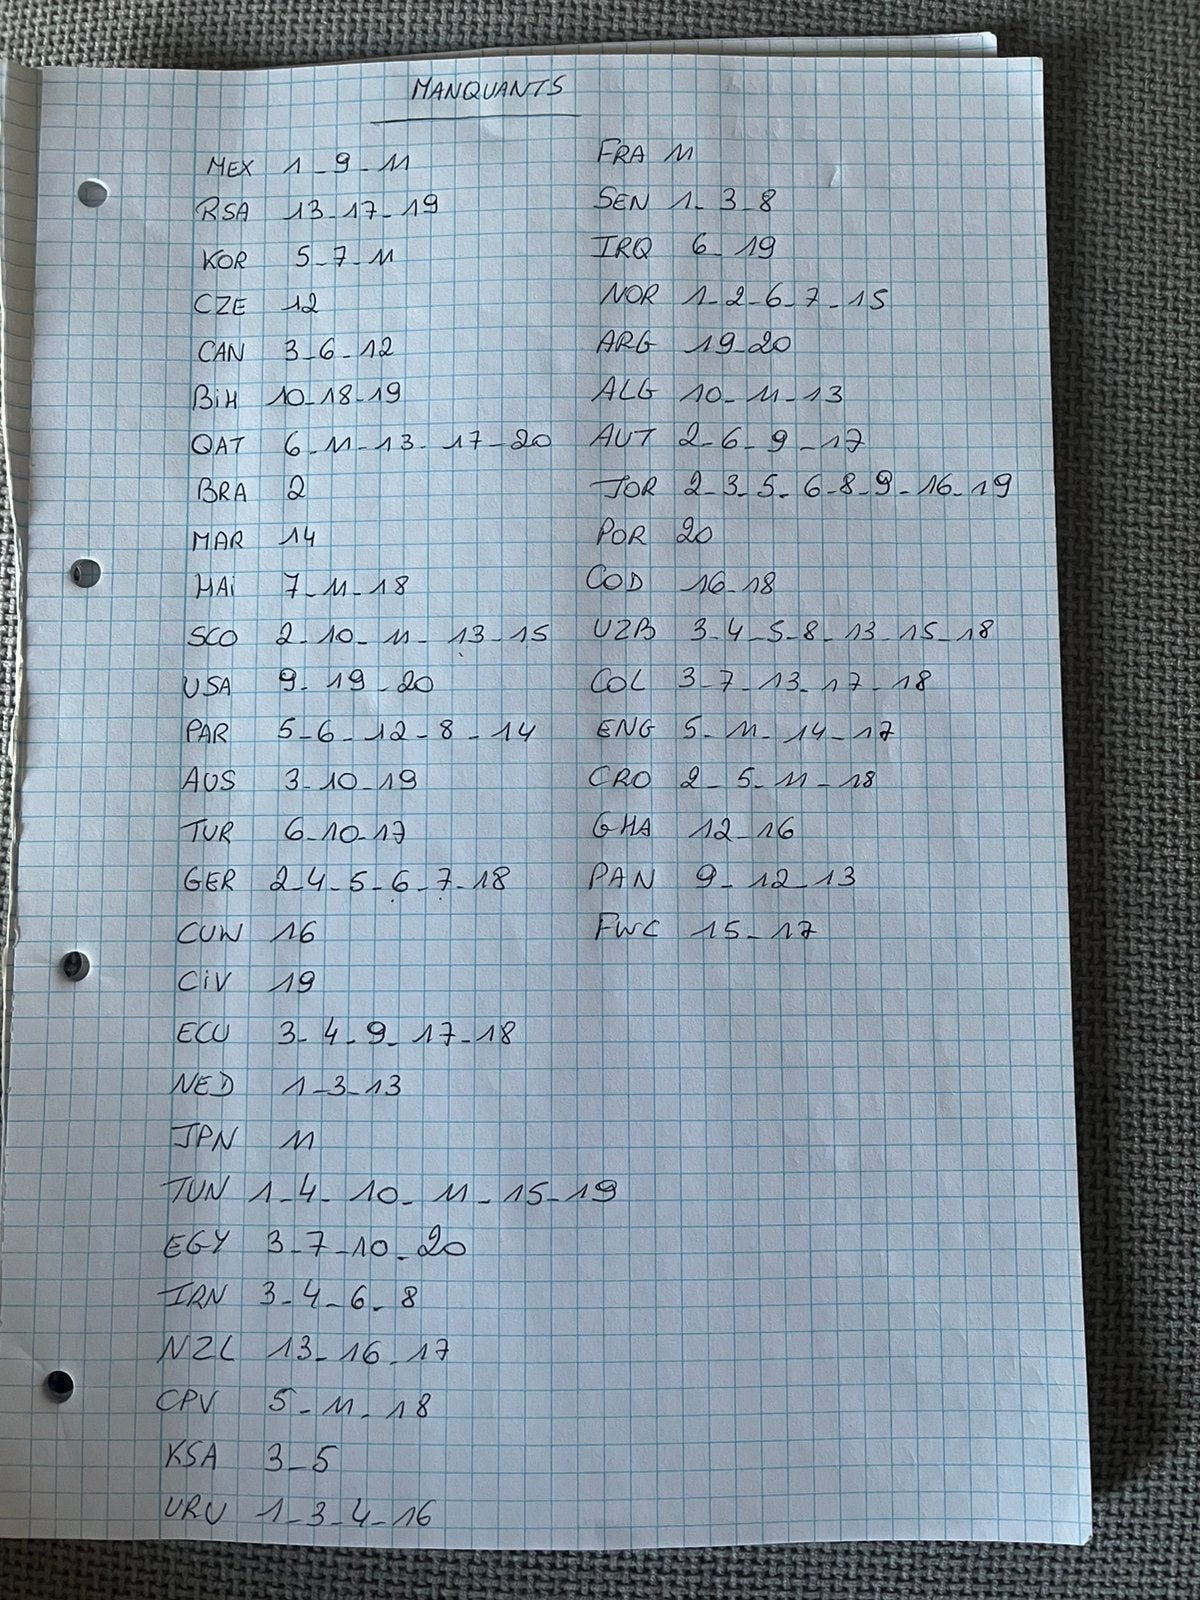 MANQUANTS
MEX 1-9-11
RSA 13-17-19
KOR 5-7-11
CZE 12
CAN 3-6-12
BiH 10-18-19
QAT 6-11-13-17-20
BRA 2
MAR 14
HAi 7-11-18
SCO 2-10-11-13-15
USA 9-19-20
PAR 5-6-12-8-14
AUS 3-10-19
TUR 6-10-17
GER 2-4-5-6-7-18
CUW 16
CiV 19
ECU 3-4-9-17-18
NED 1-3-13
JPN 11
TUN 1-4-10-11-15-19
EGY 3-7-10-20
IRN 3-4-6-8
NZL 13-16-17
CPV 5-11-18
KSA 3-5
URU 1-3-4-16
FRA 11
SEN 1-3-8
IRQ 6-19
NOR 1-2-6-7-15
ARG 19-20
ALG 10-11-13
AUT 2-6-9-17
JOR 2-3-5-6-8-9-16-19
POR 20
COD 16-18
UZB 3-4-5-8-13-15-18
COL 3-7-13-17-18
ENG 5-11-14-17
CRO 2-5-11-18
GHA 12-16
PAN 9-12-13
FWC 15-17